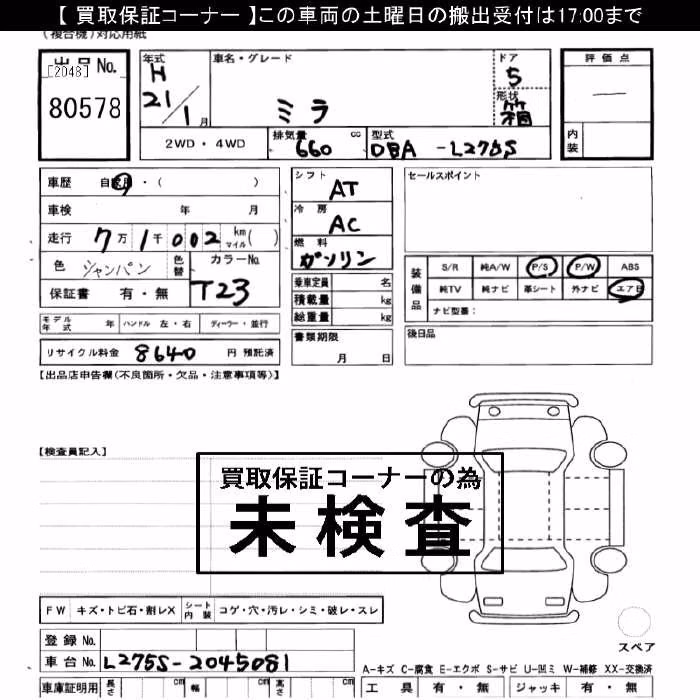 【 買取保証コーナー 】この車両の土曜日の搬出受付は17:00まで
(複合機)対応用紙
出品No.
[2048]
80578
年式
H
21/1月
車名・グレード
ミラ
ドア
5
形状
箱
評価点
―
内装
2WD・4WD
排気量
660 cc
型式
DBA -L275S
車歴 自家用・( )
車検 年 月
走行 7万1千002 km マイル( )
色 シャンパン
色替
カラーNo.
T23
保証書 有・無
モデル年式 年
ハンドル 左・右
ディーラー・並行
リサイクル料金 8640 円 預託済
シフト
AT
冷房
AC
燃料
ガソリン
乗車定員 名
積載量 kg
総重量 kg
書類期限
月 日
セールスポイント
装備品
S/R 純A/W P/S P/W ABS
純TV 純ナビ 革シート 外ナビ エアB
ナビ型番:
後日品
【出品店申告欄(不良個所・欠品・注意事項等)】
【検査員記入】
買取保証コーナーの為
未検査
FW キズ・トビ石・割レX
シート内装 コゲ・穴・汚レ・シミ・破レ・スレ
登録 No.
車台 No. L275S-2045081
スペア
A-キズ C-腐食 E-エクボ S-サビ U-凹ミ W-補修 XX-交換済
車庫証明用 長さ cm 幅 cm 高さ cm
工具 有・無 ジャッキ 有・無